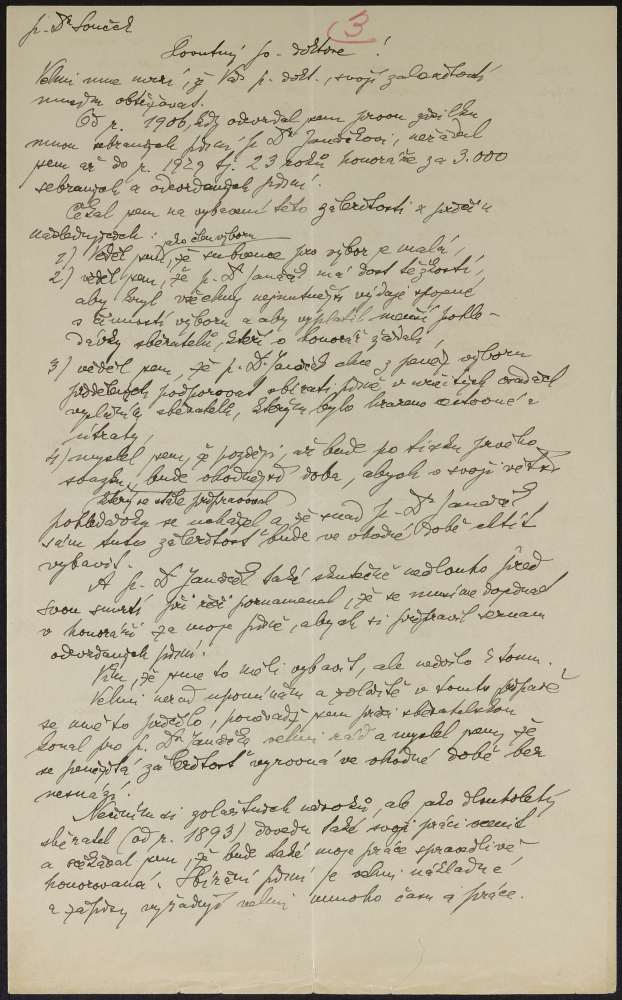 p. Dr Souček
3
Slovutný p. doktore!
Velmi mne mrzí, že Vás p. dokt., svojí záležitostí
musím obtěžovat.
Od r. 1906, kdy odevzdal jsem prvou zásilku
mnou sebraných písní p. Dr Janáčkovi, nežádal
jsem až do r. 1929 tj. 23 roků honoráře za 3.000
sebraných a odevzdaných písní.
Čekal jsem na vybavení této záležitosti z příčin
následujících:
jako člen výboru
1) Věděl jsem, že subvence pro výbor je malá,
2) věděl jsem, že p. Dr Janáček má dost těžkostí,
aby kryl všechny nejnutnější výdaje spojené
s činností výboru a aby vyplatil menší pohle-
dávky sběratelů, kteří o honorář žádali,
3) věděl jsem, že p. Dr Janáček chce z peněz výboru
podporovat sbírání písně v určitých
sběratelů, kterým bylo hrazeno cestovné a
útraty,
4) myslel jsem, že později, až bude po tisku prvého
svazku, bude vhodnější doba, abych o svoji větší
který se stále připravoval
pohledávku se ucházel a že snad p. Dr Janáček
sám tuto záležitost bude ve vhodné době chtít
vybavit.
A p. Dr Janáček také skutečně nedlouho před
svou smrtí při řeči poznamenal, že se musíme dohodnout
v honoráři za moje písně, abych si připravil seznam
odevzdaných písní.
Vím, že jsme to měli vybavit, ale nedošlo k tomu.
Velmi nerad upomínám a zvláště v tomto případě
se mně to příčilo, poněvadž jsem práci sběratelskou
konal pro p. Dr Janáčka velmi rád a myslel jsem, že
se peněžitá záležitost vyrovná ve vhodné době bez
nesnází.
Nečiním si zvláštních nároků, ale jako dlouholetý
sběratel (od r. 1893) dovedu také svoji práci ocenit
a očekával jsem, že bude také moje práce spravedlivě
honorovaná. Sbírání písní je velmi nákladné
a zápisy vyžadují velmi mnoho času a práce.